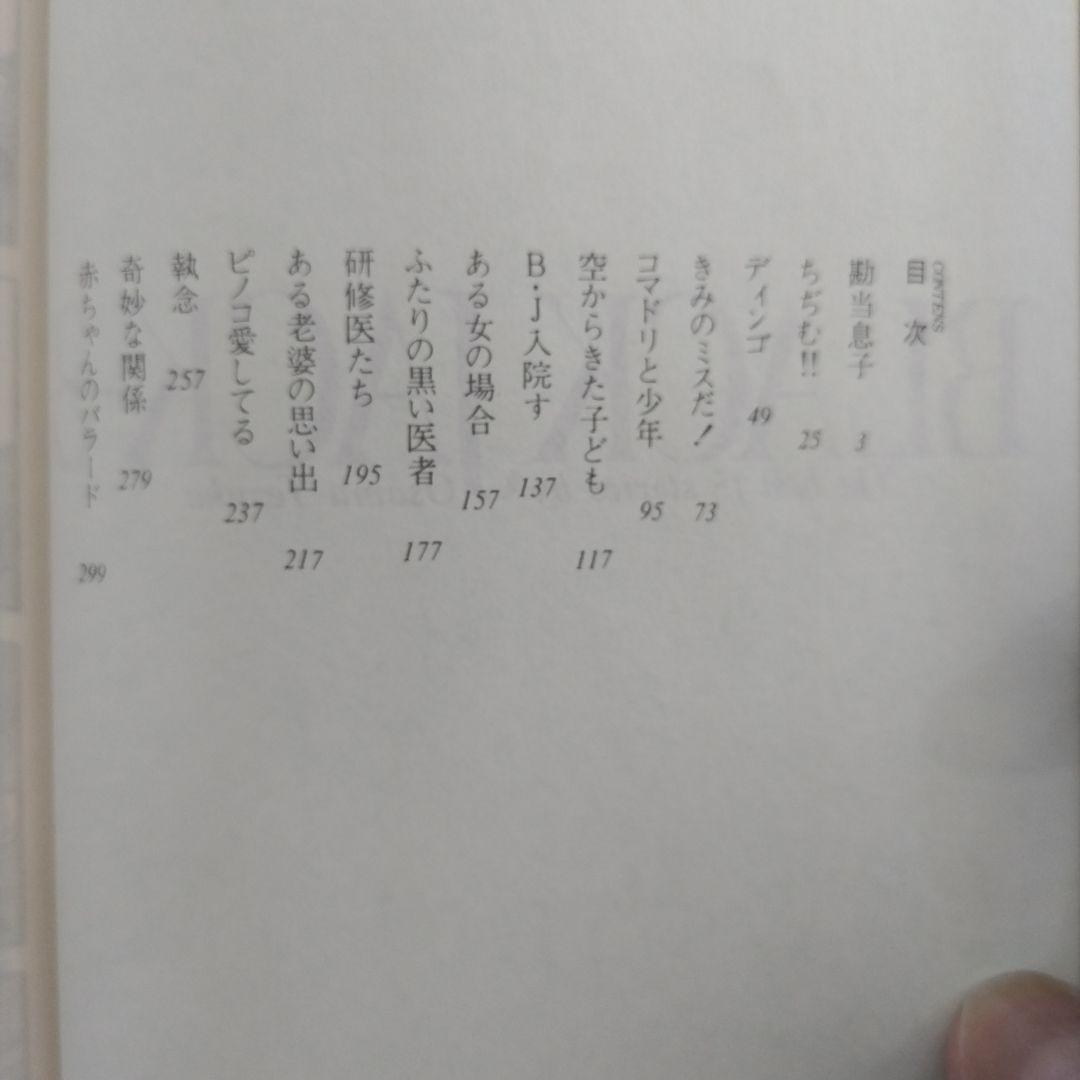 目次
CONTENS
勘当息子 3
ちぢむ!! 25
ディンゴ 49
きみのミスだ! 73
コマドリと少年 95
空からきた子ども 117
B・J入院す 137
ある女の場合 157
ふたりの黒い医者 177
研修医たち 195
ある老婆の思い出 217
ピノコ愛してる 237
執念 257
奇妙な関係 279
赤ちゃんのバラード 299